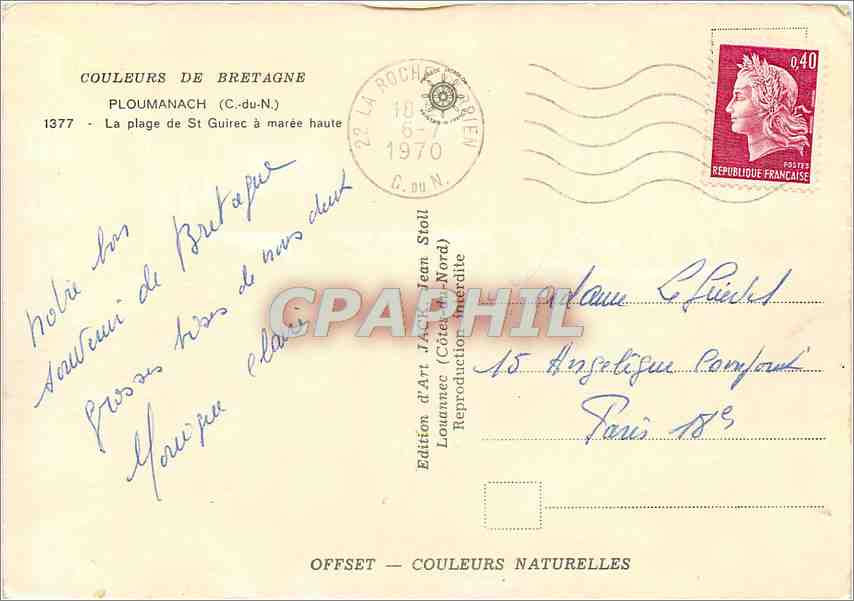 COULEURS DE BRETAGNE
PLOUMANACH (C.-du-N.)
1377 - La plage de St Guirec à marée haute
22 LA ROCHE DERRIEN
18
6-7
1970
C. DU N.
0,40
POSTES
REPUBLIQUE FRANÇAISE
notre bon
souvenir de Bretagne
grosses bises de nous deux
Monique Claire
Edition d'Art JACK Jean Stoll
Louannec (Côtes-du-Nord)
Reproduction interdite
CPAPHIL
Madame Le
15 Angélique Compoint
Paris 18e
OFFSET — COULEURS NATURELLES